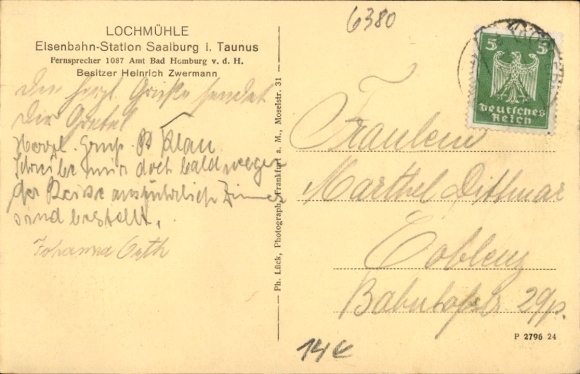 LOCHMÜHLE
Eisenbahn-Station Saalburg i. Taunus
Fernsprecher 1087 Amt Bad Homburg v. d. H.
Besitzer Heinrich Zwermann
6380
5 5
Deutsches
Reich
herzl. Grüße sendet
Dir Gretel
Herzl. Gruß
Schreibe mir doch bald wegen
der Reise ausführlich Zimmer
sind bestellt.
Johanna
Ph. Lück, Photograph, Frankfurt a. M., Moselstr. 31
Fräulein
Marthel Dittmar
Coblenz
Bahnhofstr 29p.
14€
P 2796 24